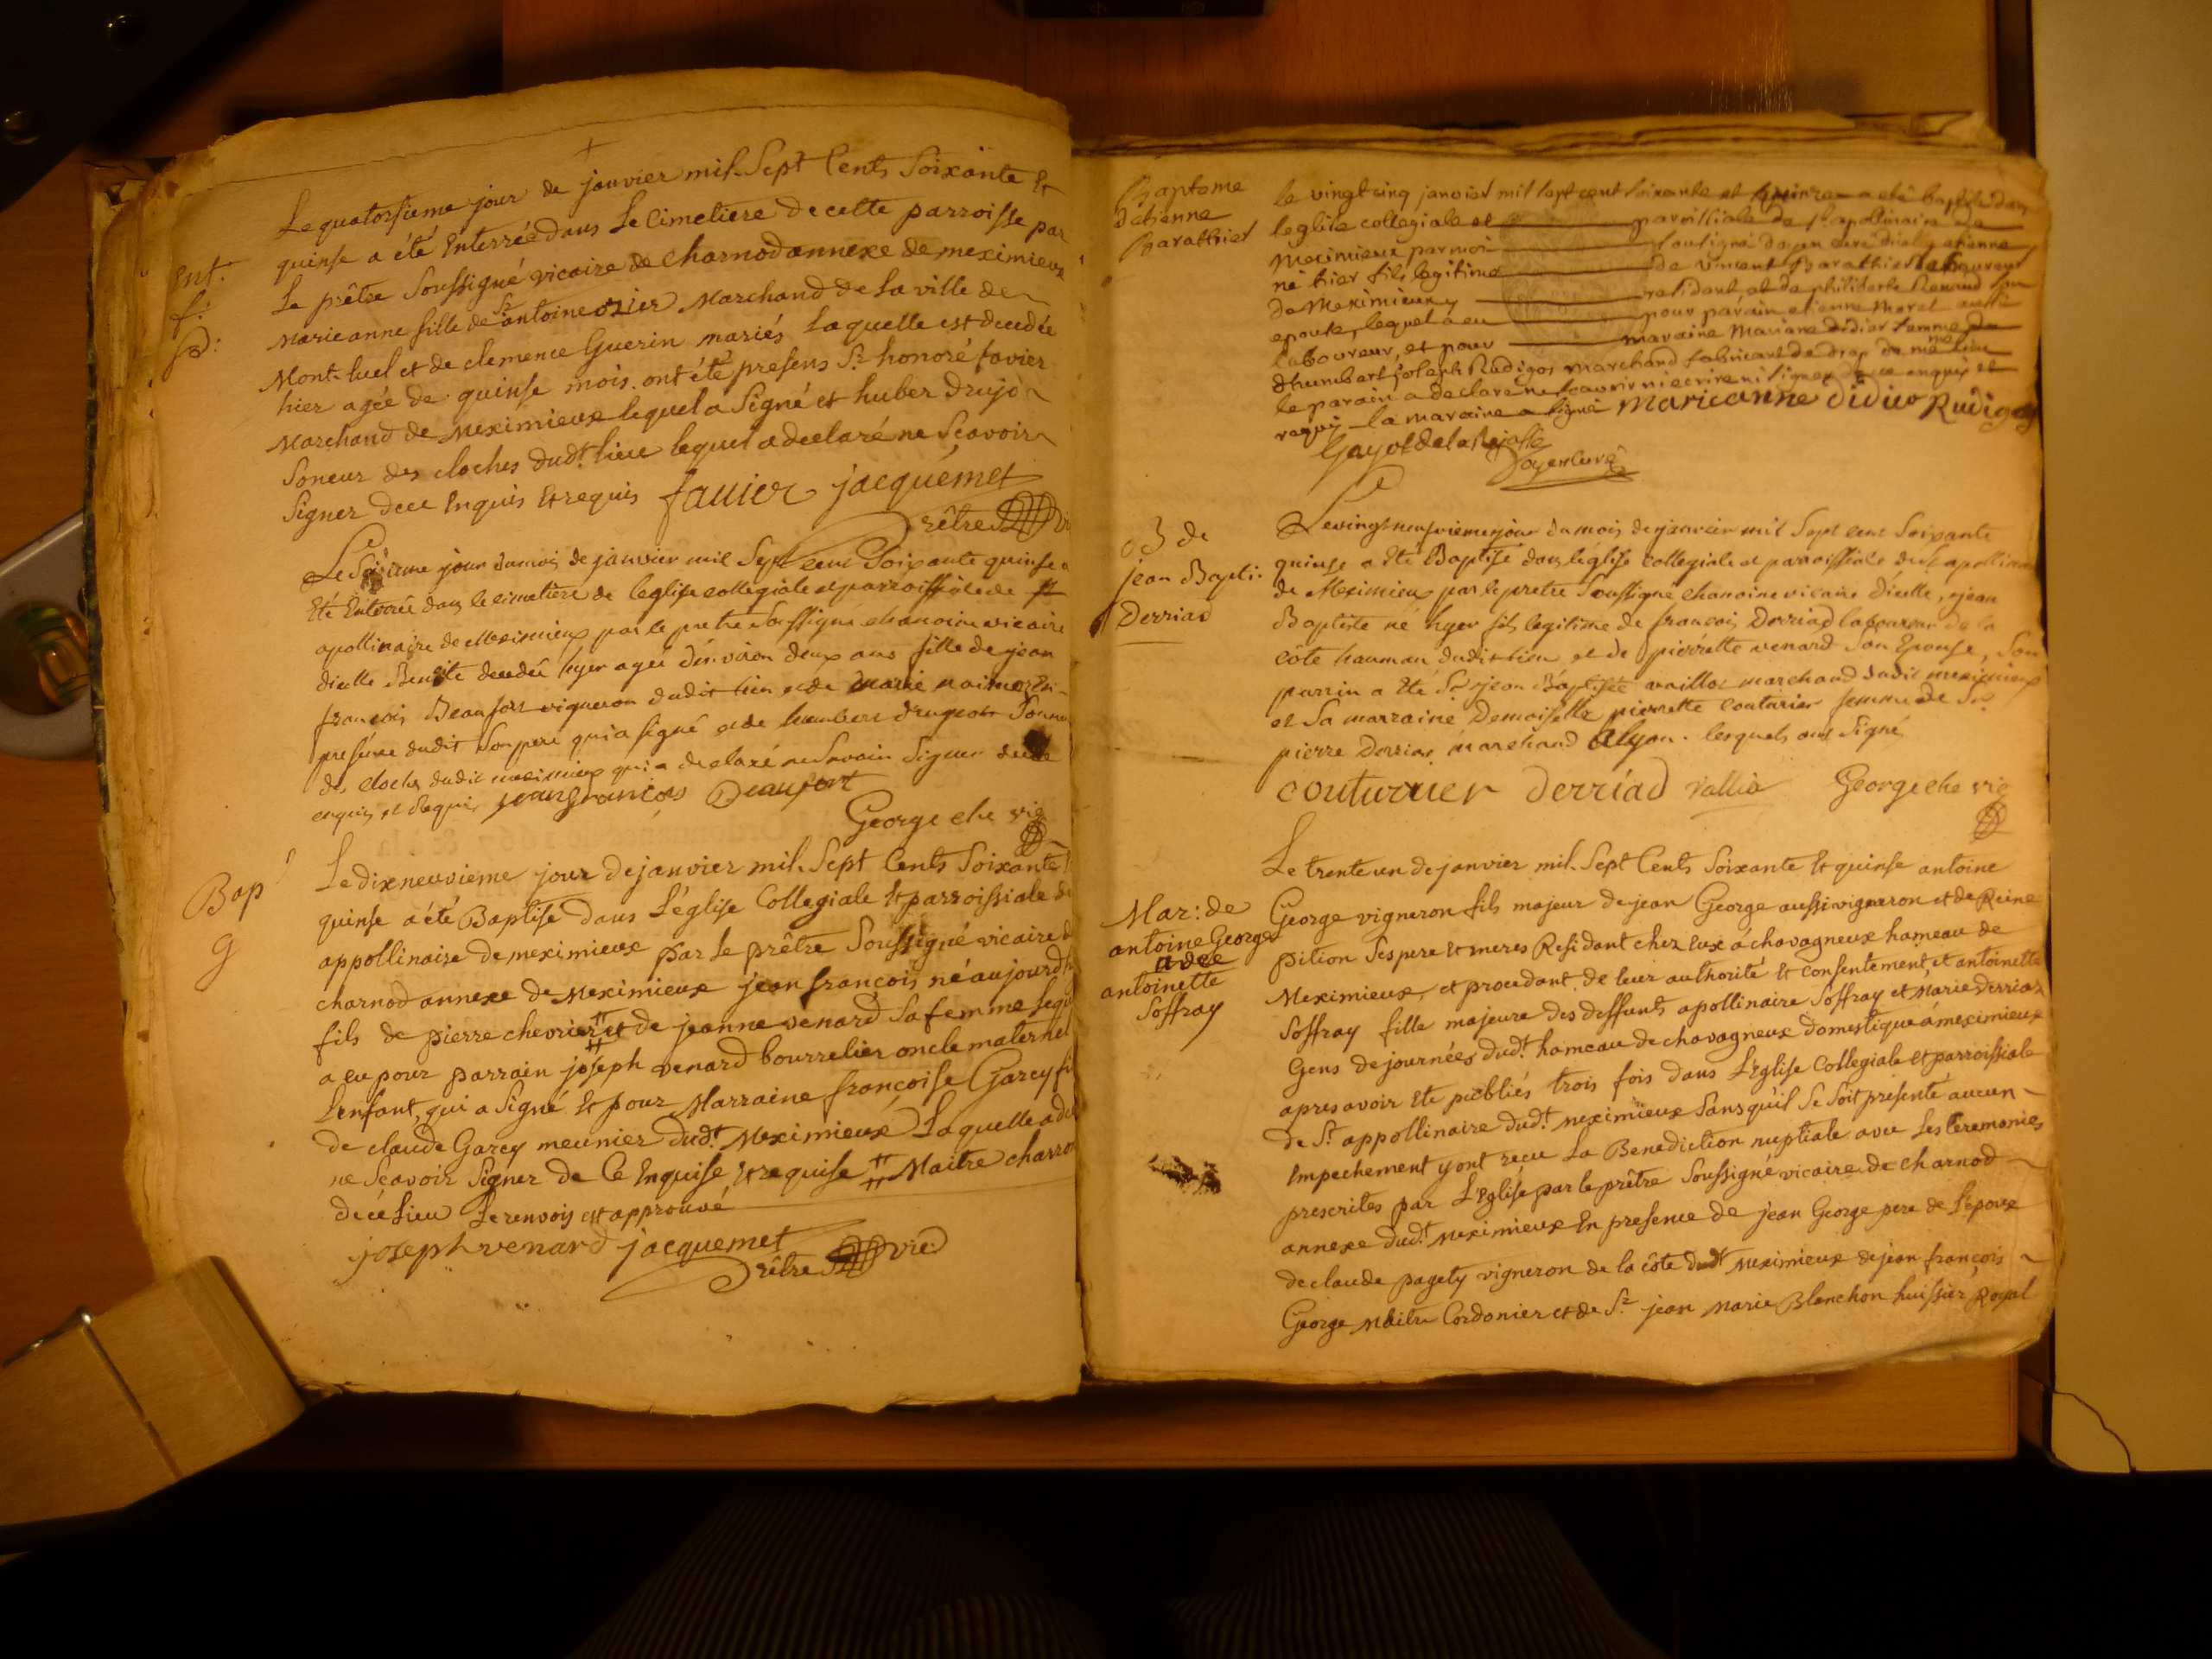 Le quatorsieme jour de janvier mil Sept Cents Soixante Et
quinse a été Enterrée dans Le Cimetiere de cette parroisse par
Le prêtre Soussigné vicaire de charnod annexe de meximieux
Ent.
f.
Marieanne fille de Sr antoine ozier Marchand de La ville de
Mont-luel et de clemence Guerin mariés Laquelle est decedée
hier agée de quinse mois. ont été presens Sr honoré favier
Marchand de Meximieux lequel a Signé et huber drujo
Soneur des cloches dudt lieu lequel a declaré ne Scavoir
Signer de ce Enquis Et requis favier jacquemet
Prêtre
Le jour du mois de janvier mil Sept cent Soixante quinse a
Eté Enterrée dans le cimetiere de leglise collegiale et parroissiale de St
apollinaire de Meximieux par le pretre Soussigné chanoine vicaire
d'icelle Benoite decedée hyer agée d'environ deux ans fille de jean
francois Beaufort vigneron dudit lieu et de marie
presence dudit Son pere qui a signé et de humbert drugeon Sonneur
des cloches dudit meximieux qui a declaré ne Savoir Signer de ce
enquis et Requis jean françois Beaufort
George che vic
Bap
g
Le dix neuvieme jour de janvier mil Sept Cents Soixante
quinse a été Baptisé dans L'église Collegiale Et parroissiale de
appollinaire de meximieux par Le prêtre Soussigné vicaire d
charnod annexe de Meximieux jean françois né aujourd'h
fils de pierre chevrier # et de jeanne venard Sa femme leq
a eu pour parrain joseph venard bourrelier oncle maternel
L'enfant, qui a Signé Et pour Marraine françoise Garey fi
de claude Garey meunier dudt Meximieux Laquelle a de
ne Scavoir Signer de Ce Enquise Et requise # Maitre charron
de ce Lieu Le renvois est approuvé
joseph venard jacquemet
Prêtre vic
Baptome
detienne
Barathier
le vingt cinq janvier mil sept cent soixante et quinze a eté baptisé dans
leglise collegiale et paroissiale de St apollinaire de
Meximieux par moi soussigné doyen curé etienne
né hier fils legitime de vincent Barathier laboureur
de Meximieux y residant et de philiberte Renaud son
epouse, lequel a eu pour parain etienne Morel aussi
laboureur, et pour maraine Mariane didier femme de
dhumbert joseph Rudigoz marchand fabricant de drap de me lieu
le parain a declare ne scavoir ni ecrire ni signer de ce enquis et
requis la maraine a signé marieanne didier Rudigoz
Gayot de la Rejasse
Doyen curé
B de
jean Bapti.
Derriad
Le vingt neuvieme jour du mois de janvier mil Sept cent Soixante
quinse a Eté Baptisé dans leglise collegiale et parroissiale de St apollinaire
de Meximieux par le pretre Soussigné chanoine vicaire d'icelle, jean
Baptiste né hyer fils legitime de francois Derriad laboureur de la
côte hameau dudit lieu et de pierrette venard Son Epouse, Son
parrin a Eté Sr jean Baptiste marchand dudit meximieux
et Sa marraine Demoiselle pierrette couturier femme de Sr
pierre Derriad marchand a lyon. lesquels ont Signé
couturier Derriad vallia George che vic
Mar: de
antoine George
avec
antoinette
Soffray
Le trente un de janvier mil Sept Cents Soixante Et quinse antoine
George vigneron fils majeur de jean George aussi vigneron et de Reine
pition Ses pere Et meres Residant chez Eux á chavagneux hameau de
Meximieux, et procedant de leur authorité Et consentement, et antoinette
Soffray fille majeure des deffunts apollinaire Soffray et Marie derriaz
Gens de journées dudt hameau de chavagneux domestique á meximieux
apres avoir Eté publiés trois fois dans L'Eglise Collegiale Et parroissiale
de St appollinaire dudt meximieux Sans qu'il Se Soit presenté aucun
Empechement y ont recu La Benediction nuptiale avec Les Ceremonies
prescrites par L'Eglise par le prêtre Soussigné vicaire de charnod
annexe dudt meximieux En presence de jean George pere de L'Epoux
de claude pagety vigneron de la côte dudt meximieux de jean françois
George Maitre Cordonier et de Sr jean Marie Blanchon huissier Royal